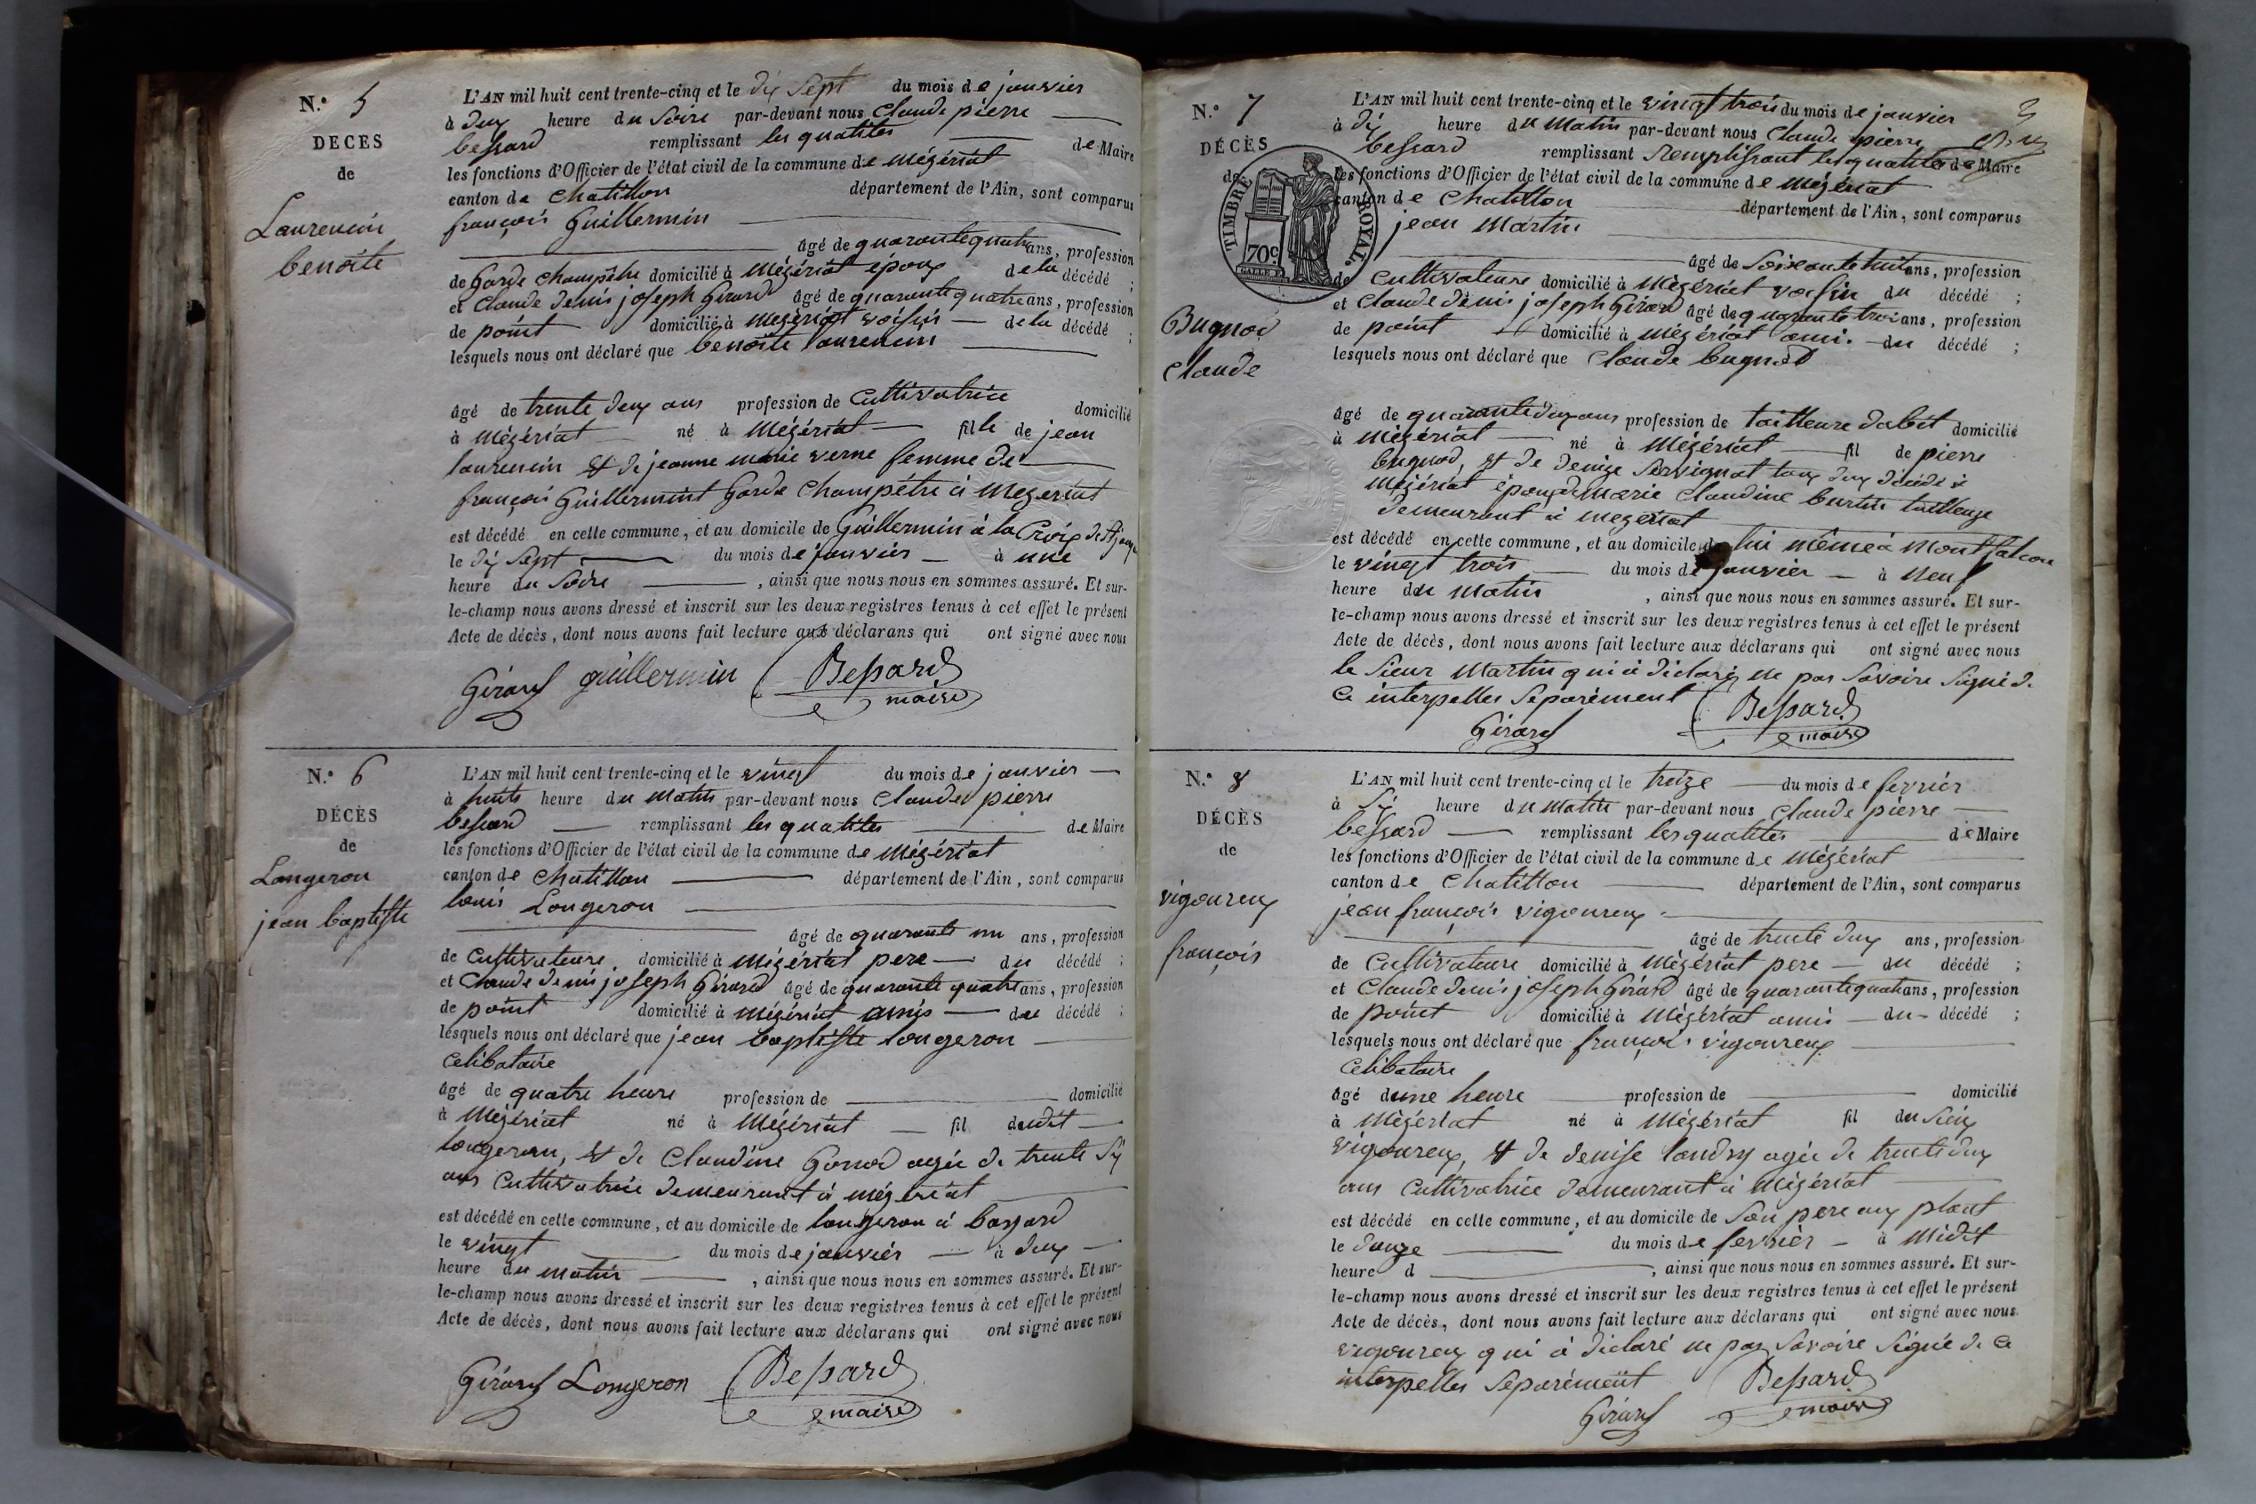 N.° 5
DÉCÈS
de
Laurencin
benoite
L'AN mil huit cent trente-cinq et le dix sept du mois de janvier
à deux heure du Soire par-devant nous Claude pierre
bessard remplissant les qualités de Maire
les fonctions d'Officier de l'état civil de la commune de Mézériat
canton de Chatillon département de l'Ain, sont comparus
françois Guillermin
âgé de quarante quatre ans, profession
de Garde Champêtre domicilié à Mézériat époux de la décédé ;
et Claude denis joseph Girard âgé de quarante quatre ans, profession
de point domicilié à Mézériat voisin de la décédé ;
lesquels nous ont déclaré que benoite Laurencin
âgé de trente deux ans profession de Cultivatrice domicilié
à Mézériat né à Mézériat fille de jean
laurencin et de jeanne marie verne femme de
françois Guillermint Garde Champêtre à Mezeriat
est décédé en cette commune, et au domicile de Guillermin à la Croix
le dix Sept du mois de janvier à une
heure du Soire , ainsi que nous nous en sommes assuré. Et sur-
le-champ nous avons dressé et inscrit sur les deux registres tenus à cet effet le présent
Acte de décès, dont nous avons fait lecture aux déclarans qui ont signé avec nous
Girard guillermin Bessard
maire
N.° 6
DÉCÈS
de
Longeron
jean baptiste
L'AN mil huit cent trente-cinq et le vingt du mois de janvier
à huits heure du Matin par-devant nous Claude pierre
bessard remplissant les qualités de Maire
les fonctions d'Officier de l'état civil de la commune de Mézériat
canton de Chatillon département de l'Ain, sont comparus
louis Longeron
âgé de quarante un ans, profession
de Cultivateure domicilié à Mézériat pere du décédé ;
et Claude denis joseph Girard âgé de quarante quatre ans, profession
de point domicilié à Mézériat amis du décédé ;
lesquels nous ont déclaré que jean baptiste longeron
Celibataire
âgé de quatre heure profession de domicilié
à Mézériat né à Mézériat fil dudit
longeron, et de Claudine Gonod agée de trente six
ans Cultivatrice demeurant à mézériat
est décédé en cette commune, et au domicile de longeron à
le vingt du mois de janvier à deux
heure du matin , ainsi que nous nous en sommes assuré. Et sur-
le-champ nous avons dressé et inscrit sur les deux registres tenus à cet effet le présent
Acte de décès, dont nous avons fait lecture aux déclarans qui ont signé avec nous
Girard Longeron Bessard
maire
3
N.° 7
DÉCÈS
de
TIMBRE ROYAL.
70c
Bugnod
Claude
L'AN mil huit cent trente-cinq et le vingt trois du mois de janvier
à dix heure du Matin par-devant nous Claude pierre
bessard remplissant remplissant les qualités de Maire
les fonctions d'Officier de l'état civil de la commune de Mézériat
canton de Chatillon département de l'Ain, sont comparus
jean Martin
âgé de Soixante huit ans, profession
de Cultivateure domicilié à Mézériat voisin du décédé ;
et Claude denis joseph Girard âgé de quarante trois ans, profession
de point domicilié à Mézériat ami du décédé ;
lesquels nous ont déclaré que Claude bugnod
âgé de quarante deux ans profession de tailleure dabit domicilié
à Mézériat né à Mézériat fil de pierre
bugnod, et de denize Servignat tous deux décédé à
Mézériat époux de marie Claudine burtin tailleuze
demeurant à mezeriat
est décédé en cette commune, et au domicile de lui même à Montfalcon
le vingt trois du mois de janvier à neuf
heure du Matin , ainsi que nous nous en sommes assuré. Et sur-
le-champ nous avons dressé et inscrit sur les deux registres tenus à cet effet le présent
Acte de décès, dont nous avons fait lecture aux déclarans qui ont signé avec nous
le Sieur Martin qui à déclaré ne pas Savoire Signé de
Ce interpelles Séparément Bessard
Girard maire
N.° 8
DÉCÈS
de
vigoureux
françois
L'AN mil huit cent trente-cinq et le treize du mois de fevrier
à Six heure du Matin par-devant nous Claude pierre
bessard remplissant les qualités de Maire
les fonctions d'Officier de l'état civil de la commune de Mézériat
canton de Chatillon département de l'Ain, sont comparus
jean françois vigoureux
âgé de trente deux ans, profession
de Cultivateure domicilié à Mézériat pere du décédé ;
et Claude denis joseph Girard âgé de quarante quatre ans, profession
de point domicilié à Mézériat amis du décédé ;
lesquels nous ont déclaré que françois vigoureux
Celibataire
âgé dune heure profession de domicilié
à Mézériat né à Mézériat fil du Sieur
vigoureux, et de denise landry agée de trente deux
ans Cultivatrice demeurant à Mézériat
est décédé en cette commune, et au domicile de Son pere aux plant
le douze du mois de fevrier à Midit
heure d , ainsi que nous nous en sommes assuré. Et sur-
le-champ nous avons dressé et inscrit sur les deux registres tenus à cet effet le présent
Acte de décès, dont nous avons fait lecture aux déclarans qui ont signé avec nous
vigoureux qui à déclaré ne pas Savoire Signé de Ce
interpelles Séparément Bessard
Girard maire